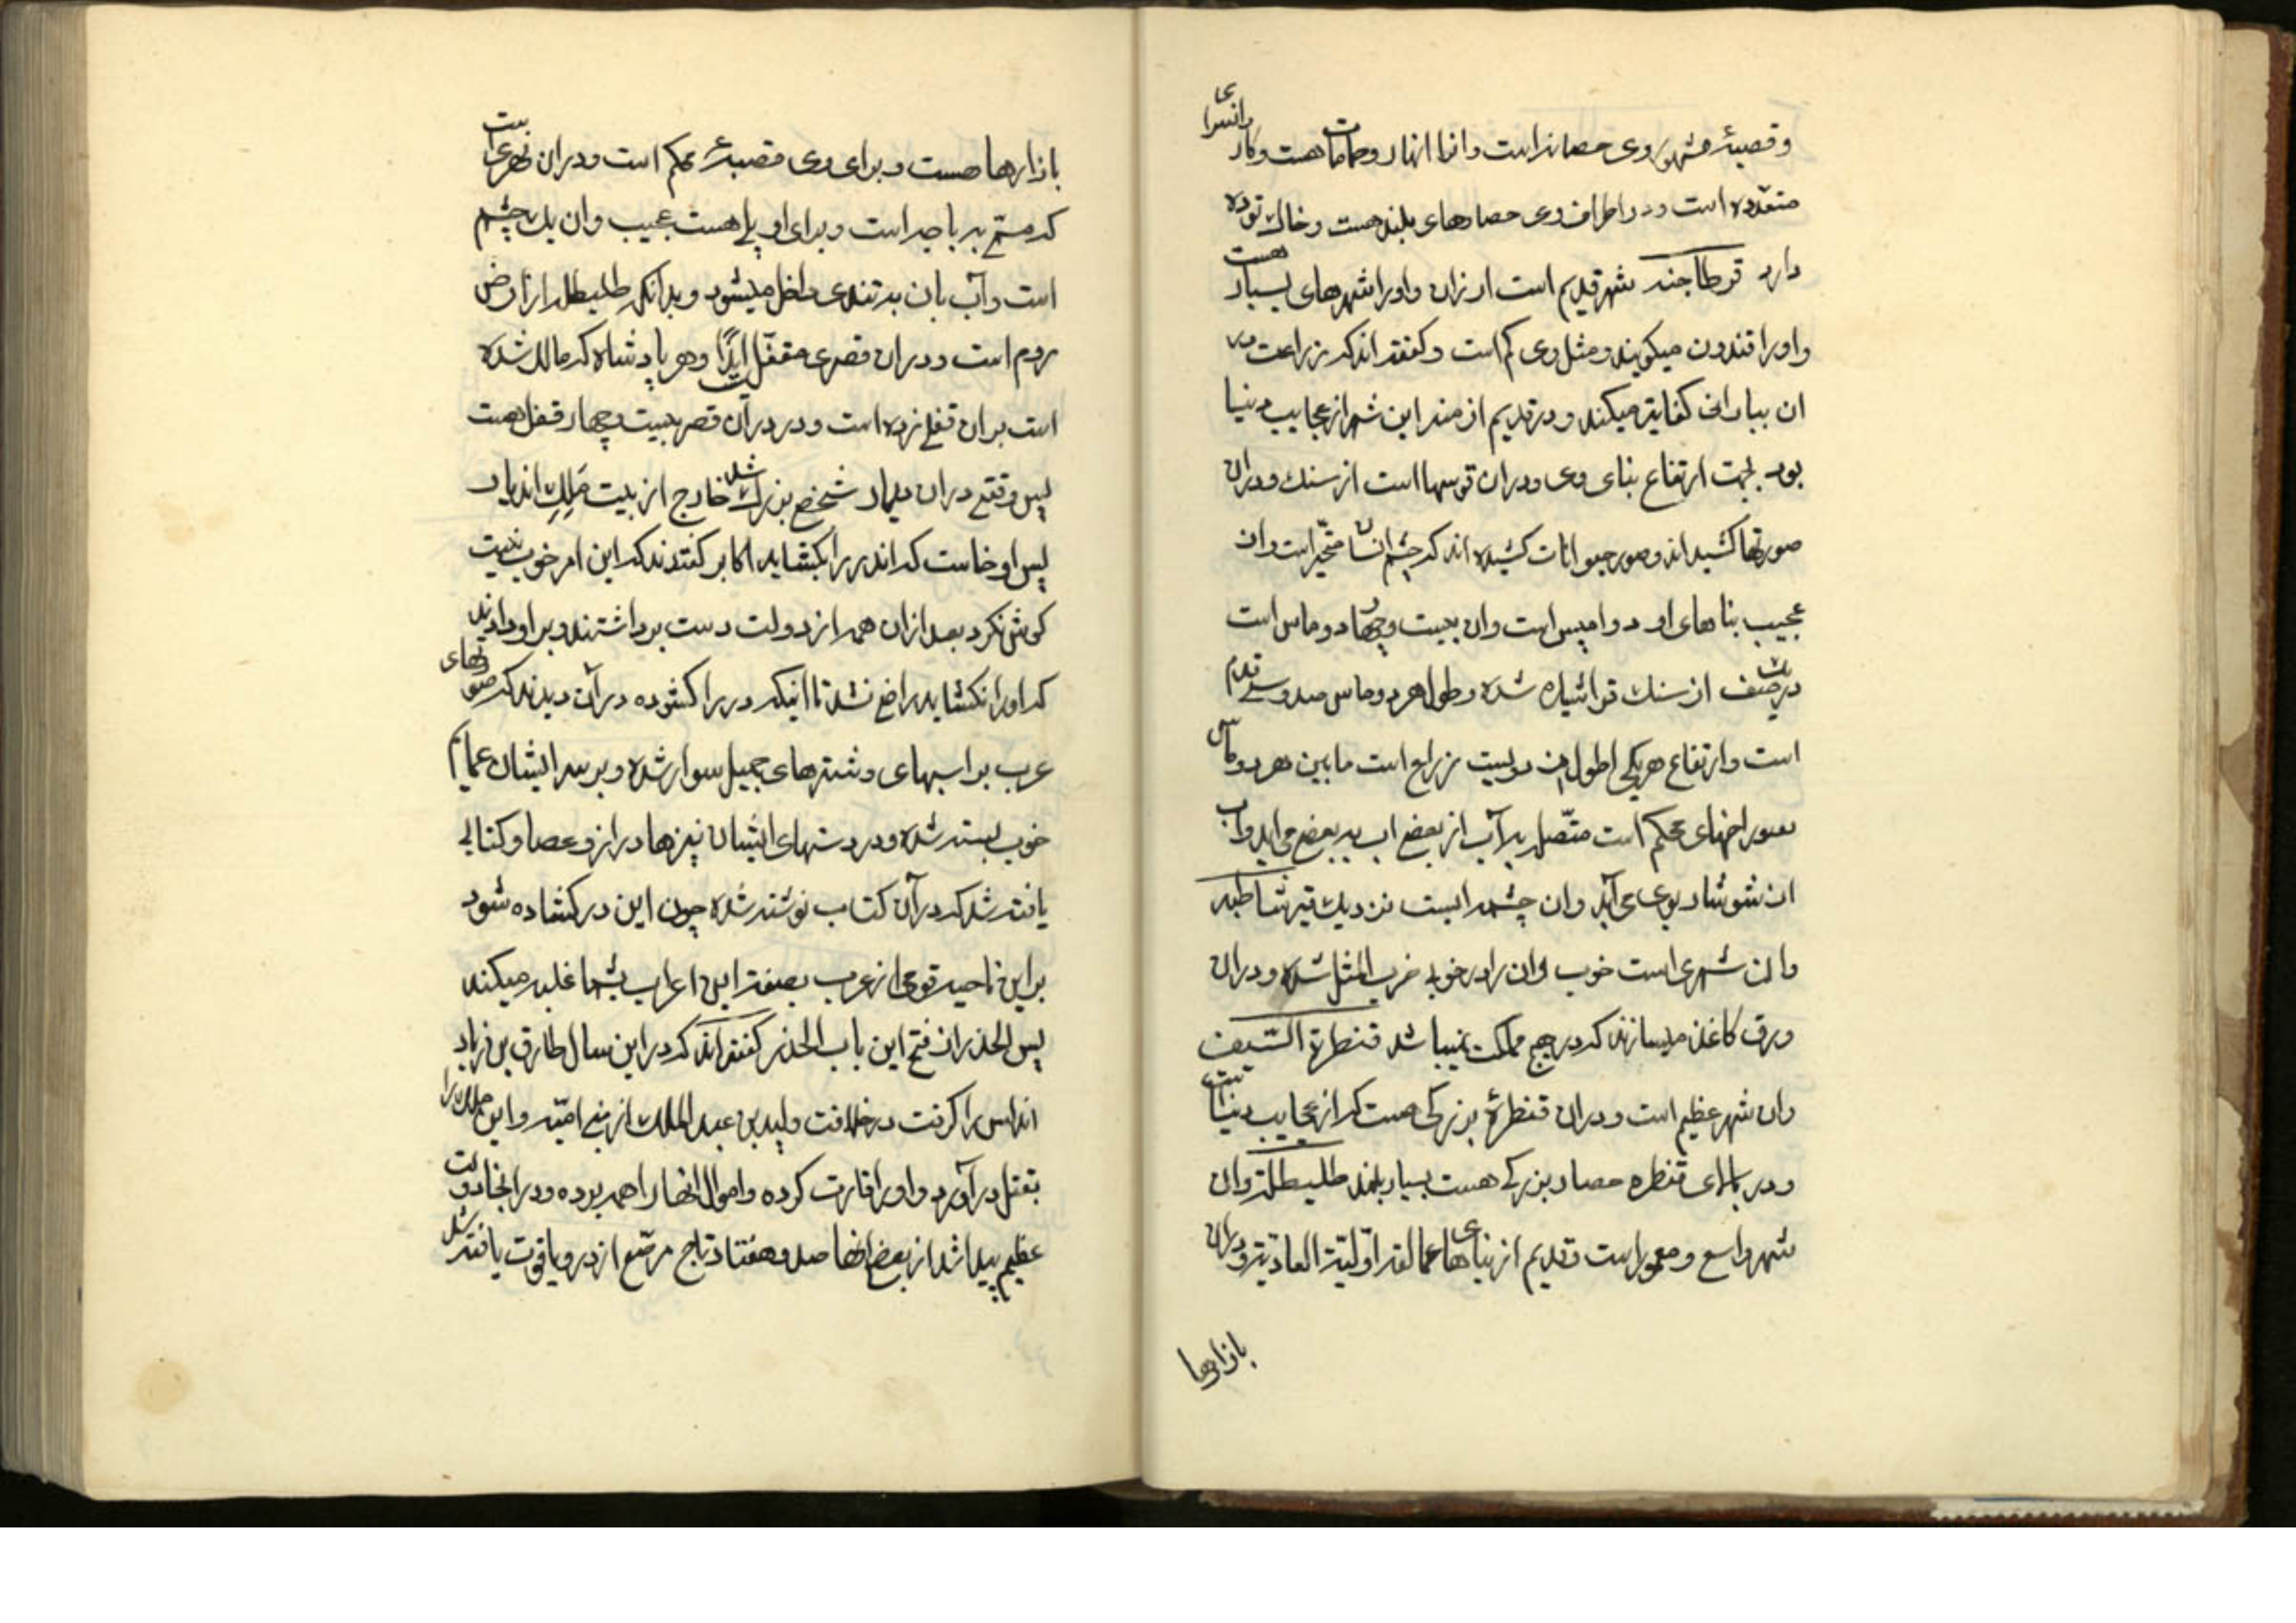 وقصبهٔ مشهور وی حصانه است وانرا انهار وحمامات هست وکاروانسرای
متعدده است ودر اطراف وی حصارهای بلند هست وخاک توده
دارد قرطاجنه شهر قدیم است ارزان واورا شهرهای بسیار هست
واورا قندون میکویند ومثل وی کم است وکفته اند که زراعت در
ان ببارانی کفایته میکند ودر قدیم ازمنه این شهر از عجایب دنیا
بود بجهت ارتفاع بنای وی ودران قوسها است از سنک ودران
صورتها کشیده اند وصور حیوانات کشیده اند که چشم انسان متحیر است وان
عجیب بناهای او دوامیس است وان بیست وچهار دوماس است
در یک صنف از سنک قرانتیاره شده وطول هر دوماس صد وسی قدم
است وارتفاع هر یکی اطول من دویست زراع است ما بین هر دوماس
سوراخهای محکم است متصل به آب از بعض اب به بعض می اید واب
ان شوشار بوی می آید وان چشمه ایست نزدیک قیر شاطبه
وان شهری است خوب وان را در خوبی ضرب المثل شده ودران
ورق کاغذ میسازند که در جمیع مملکت نمیباشد قنطرة السیف
وان شهر عظیم است ودران قنطرهٔ بزرکی هست که از عجایب دنیا است
ودر بالای قنطره حصار بزرکی هست بسیار بلند طلیطلة وان
شهر واسع ومعمور است قدیم از بناهای عمالقه اولیة العادیة ودران
بازارها
بازارها هست وبرای وی قصبهٔ محکم است ودران نهری است
که مستی به باجه است وبرای او پلی هست عجیب وان یک چشم
است وآب بان به تندی داخل میشود وبدانکه طلیطله از ارض
روم است ودران قصری مقفل است ابدًا وهر پادشاه که مالک شده
است بران قفلی زده است ودر در آن قصر بیست وچهار قفل هست
پس وقتی دران دیار شخص بزرک شد خارج از بیت ملک اندیار
پس او خاست که اندر را بکشاید اکابر کفتند که این امر خوب نیست
کوش نکرد بعد ازان همه از دولت دست برداشتند وبر او دادند
که اورا نکشاید راضی نشد تا اینکه در را کشوده در آن دیدند که صورتهای
عرب بر اسبهای وشترهای جمیل سوار شده وبر سر ایشان عمایم
خوب بسته شده ودر دستهای ایشان نیزها دراز وعصا وکتابی
یافته شد که در آن کتاب نوشته شده چون این در کشاده شود
بر این ناحیه قومی از عرب بصفت این اعراب بشما غلبه میکند
پس الحذر ان فتح این باب الحذر کفته اند که در این سال طارق بن زیاد
اندلس را کرفت در خلافت ولید بن عبد الملک از بنی امیه واین ملک را
بقتل در آورد واورا قارت کرده واموال انها را همه برده ودر انجا دولت
عظیم پیدا شد از بعض انها صد وهفتاد تاج مرصع از در ویاقوت یافته شد